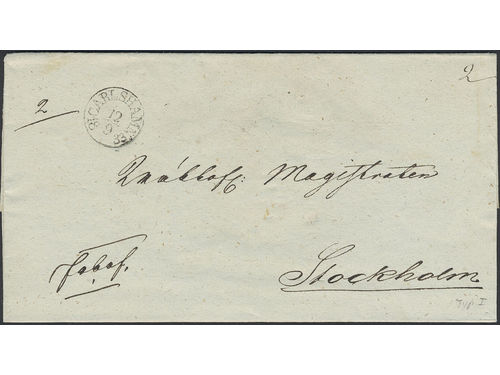 2
2
CARLSHAMN
12
9
Magistraten
Stockholm
Typ I